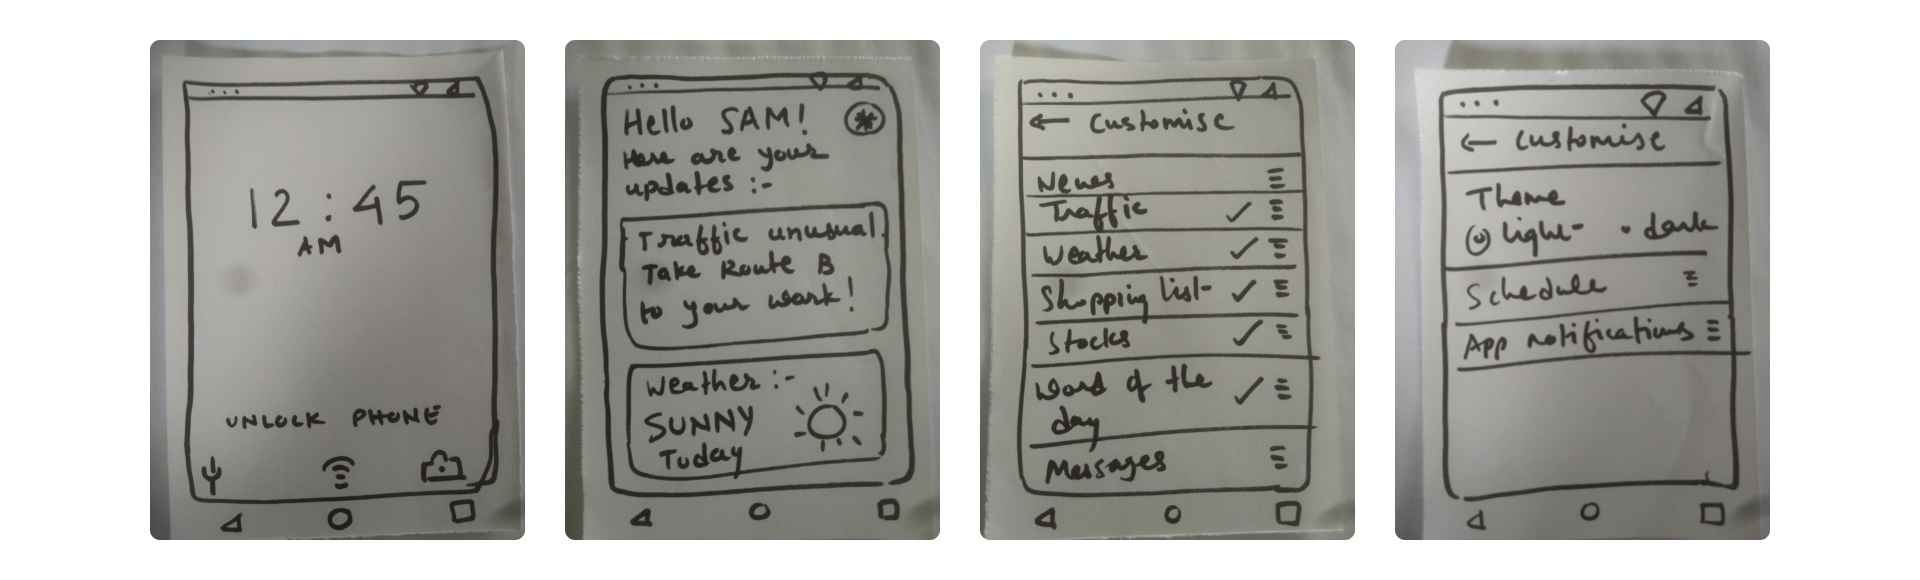 12:45
AM
UNLOCK PHONE
Hello SAM!
Here are your
updates :-
Traffic unusual.
Take Route B
to your work!
Weather :-
SUNNY
Today
← Customise
News
Traffic ✓
Weather ✓
Shopping list ✓
Stocks ✓
Word of the
day ✓
Messages
← Customise
Theme
light • dark
Schedule
App notifications